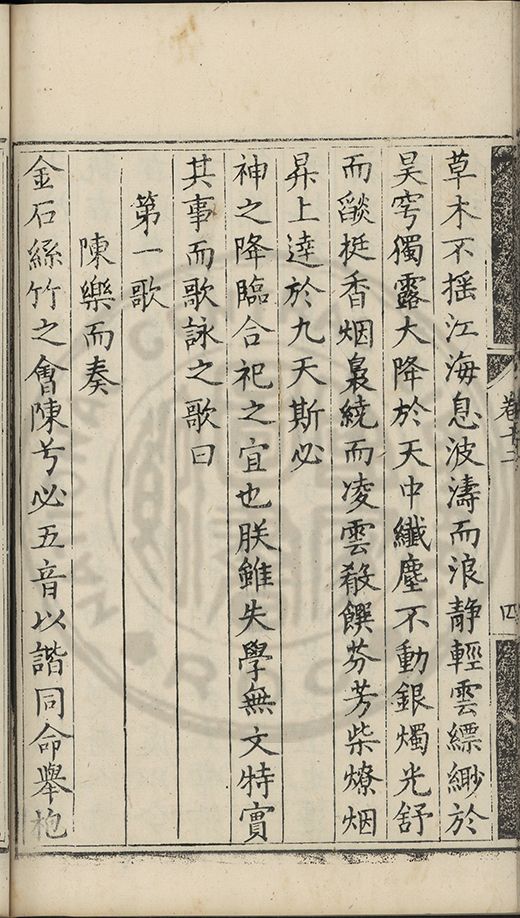 卷十二
四
草木不摇江海息波濤而浪靜輕雲縹緲於
昊穹獨露大降於天中纖塵不動銀燭光舒
而燄挺香烟裊繞而凌雲殽饌芬芳柴燎烟
昇上達於九天斯必
神之降臨合祀之宜也朕雖失學無文特實
其事而歌詠之歌曰
第一歌
陳樂而奏
金石絲竹之會陳兮必五音以諧同命舉枹